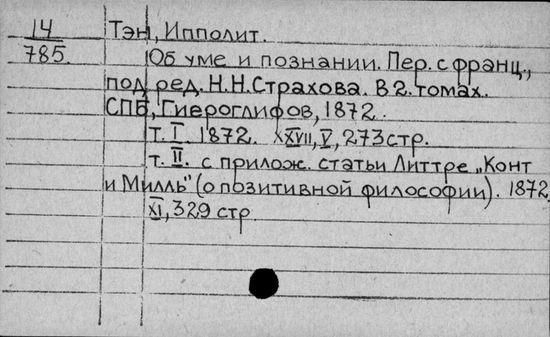 14
785.
Тэн, Ипполит.
Об уме и познании. Пер. с франц.,
под ред. Н.Н.Страхова. В 2. томах.
СПБ, Гиероглифов, 1872.
т. I 1872. XXVII, V, 273 стр.
т. II. с прилож. статьи Литтре „Конт
и Милль" (о позитивной философии). 1872
XI, 329 стр.